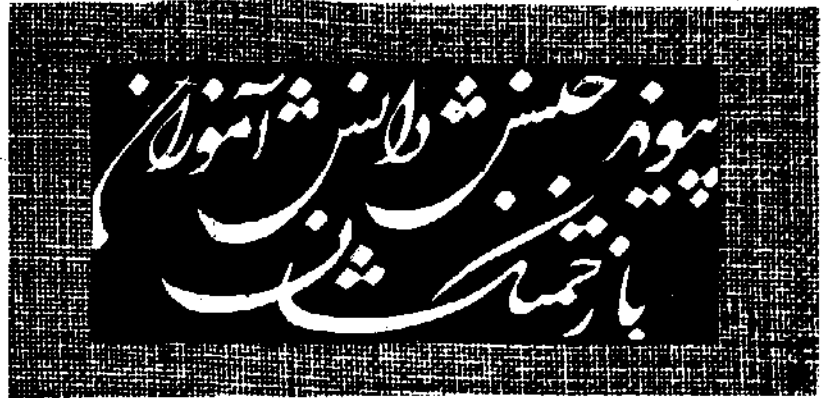 پیوند جنبش دانش آموزان
با زحمتکشان